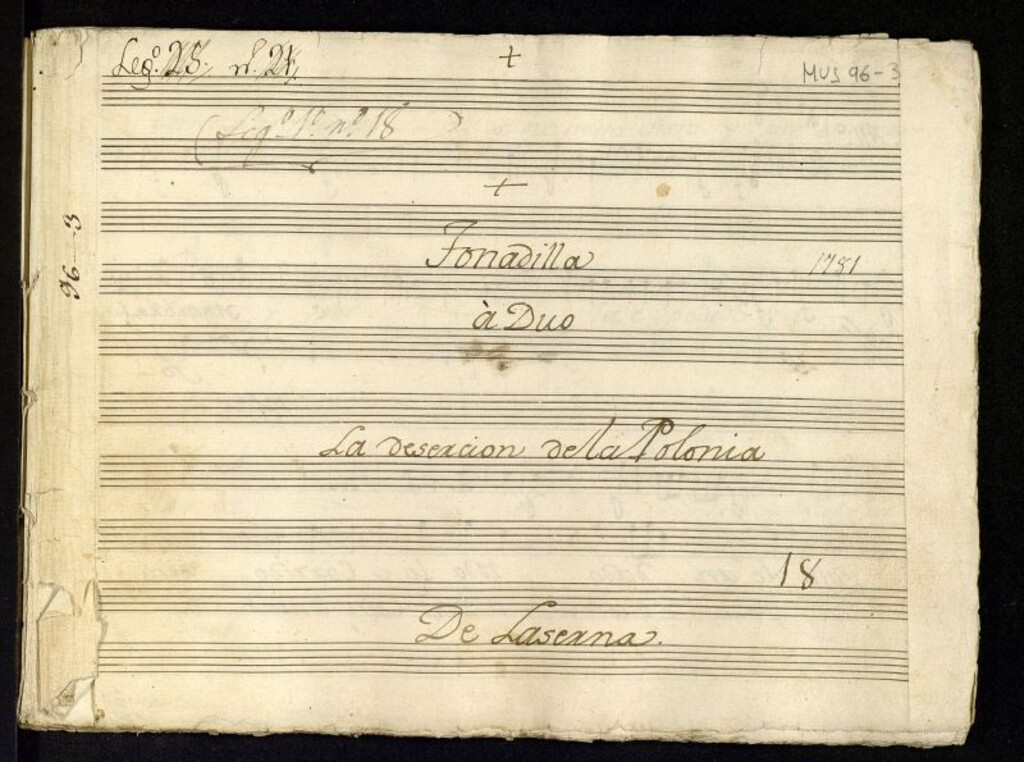 Leg.º 28. n.º 21.
MUS 96-3
(Leg.º 1.º n.º 18)
96-3
Tonadilla
1781
à Duo
La desercion de la Polonia
18
De Laserna.